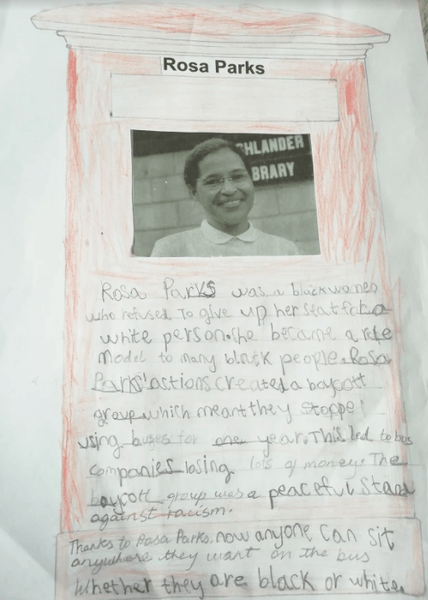 Rosa Parks
HLANDER
BRARY
Rosa Parks was a black women
who refused To give up her seat for a
white person. she became a role
model to many black people. Rosa
Parks' actions created a boycott
group which meant they stoppe
using buses for one year. This led to bus
companies losing lots of money. The
boycott group was a peaceful stand
against racism.
Thanks to Rosa Parks, now anyone can sit
anywhere they want on the bus
whether they are black or white.